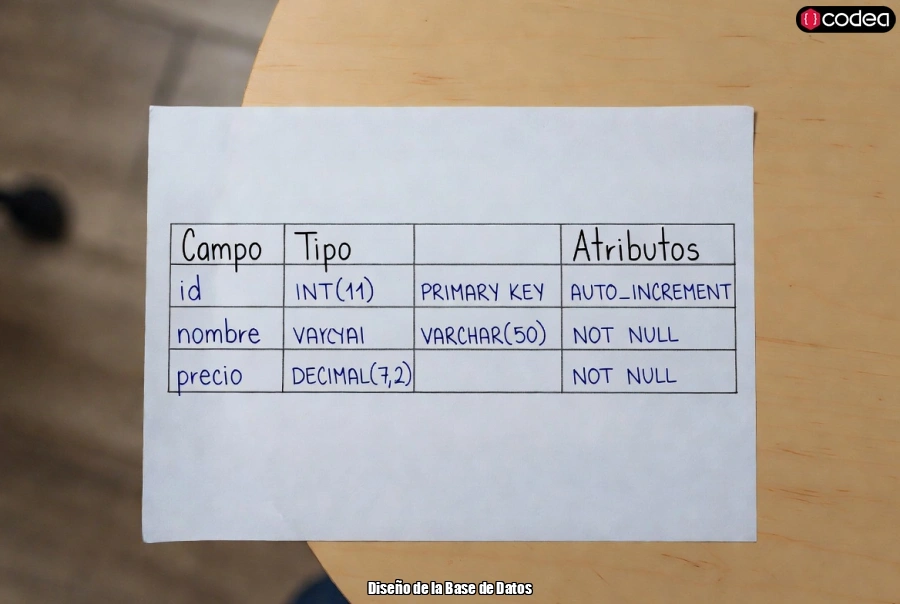 codea
Campo Tipo Atributos
id INT(11) PRIMARY KEY AUTO_INCREMENT
nombre VARCHAR(50) NOT NULL
precio DECIMAL(7,2) NOT NULL
Diseño de la Base de Datos